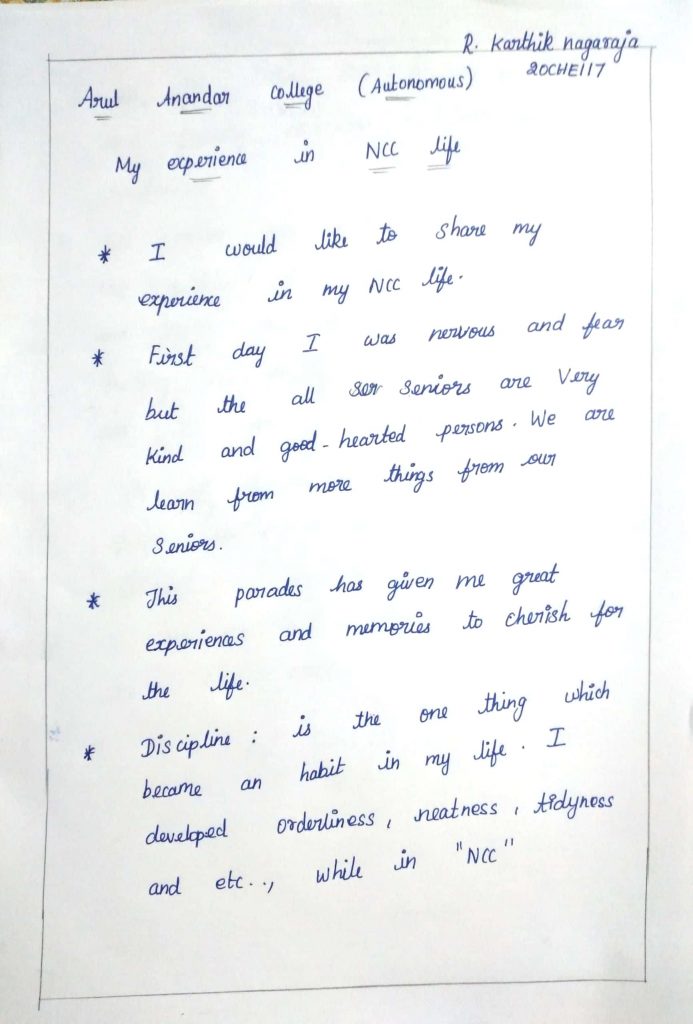 R. Karthik nagaraja
20CHE117
Arul Anandar college (Autonomous)
My experience in NCC life
* I would like to share my
experience in my NCC life.
* First day I was nervous and fear
but the all ser seniors are Very
kind and good-hearted persons. We are
learn from more things from our
Seniors.
* This parades has given me great
experiences and memories to cherish for
the life.
* Discipline : is the one thing which
became an habit in my life. I
developed orderliness, neatness, tidyness
and etc.., while in "NCC"